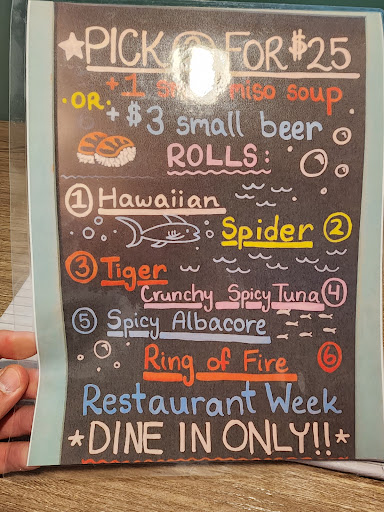 PICK FOR $25
+ 1 miso soup
OR + $3 small beer
ROLLS:
1 Hawaiian
Spider 2
3 Tiger
Crunchy Spicy Tuna 4
5 Spicy Albacore
Ring of Fire 6
Restaurant Week
*DINE IN ONLY!!*